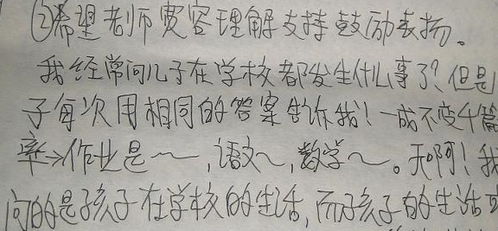 ②希望老师宽容理解支持鼓励表扬。
我经常问儿子在学校都发生什么事了?但是
子每次用相同的答案告诉我!一成不变千篇
率→作业是~,语文~,数学~。天啊!我
问的是孩子在学校的生活,而孩子的生活